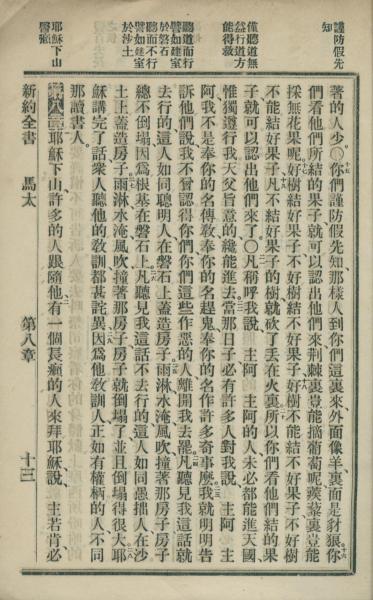 謹防假先知
僅聽道無益行道方能得救
聽道而行譬如建室於磐石
聽而不行譬如建室於沙土
耶穌下山醫癩
著的人少○你們謹防假先知那樣人到你們這裏來外面像羊裏面是豺狼你
們看他們所結的果子就可以認出他們來荆棘裏豈能摘葡萄呢蒺藜裏豈能
採無花果呢好樹結好果子不好樹結不好果子好樹不能結不好果子不好樹
不能結好果子凡不結好果子的樹就砍了丟在火裏所以你們看他們結的果
子就可以認出他們來了○凡稱呼我說主阿主阿的人未必都能進天國
惟獨遵行我天父旨意的纔能進去當那日子必有許多人對我說主阿主
阿我不是奉你的名傳敎奉你的名趕鬼奉你的名作許多奇事麼我就明明告
訴他們說我不曾認得你們你們這些作惡的人離開我去罷凡聽見我這話就
去行的這人如同聰明人在磐石上蓋造房子雨淋水淹風吹撞著那房子房子
總不倒塌因爲根基在磐石上凡聽見我這話不去行的這人如同愚拙人在沙
土上蓋造房子雨淋水淹風吹撞著那房子房子就倒塌了並且倒塌得很大耶
穌講完了話衆人聽他的敎訓都甚詫異因爲他敎訓人正如有權柄的人不同
那讀書人
第八章耶穌下山許多的人跟隨他有一個長癩的人來拜耶穌說主若肯必
新約全書 馬太 第八章 十三